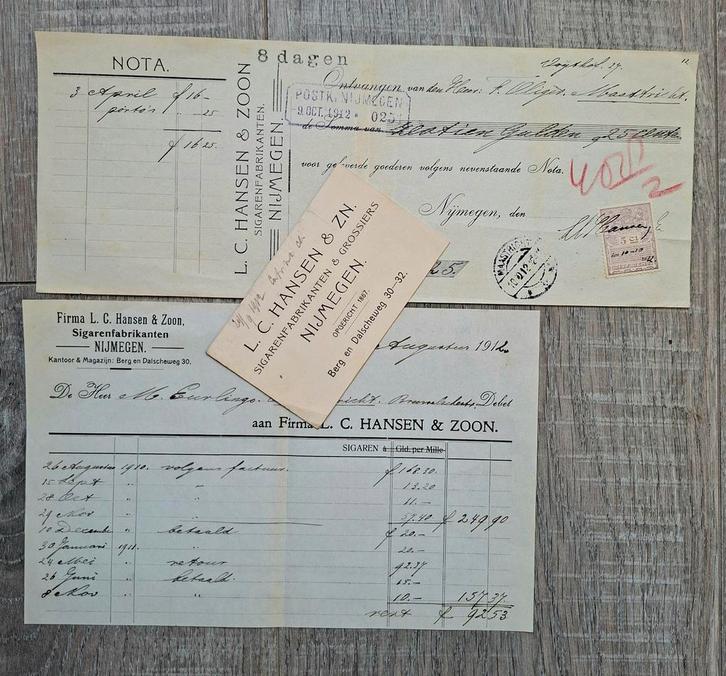 NOTA.
3 April f 16 -
porto's - 25
f 16 25.
L. C. HANSEN & ZOON
SIGARENFABRIKANTEN.
NIJMEGEN
8 dagen
Ontvangen van den Heer: Maastricht.
POSTK. NIJMEGEN
9. OCT. 1912
de Somma van Zestien Gulden 25 cents
voor geleverde goederen volgens nevenstaande Nota.
Nijmegen, den
MAASTRICHT
L. C. HANSEN & ZN.
SIGARENFABRIKANTEN & GROSSIERS
NIJMEGEN
OPGERICHT 1897.
Berg en Dalscheweg 30-32.
25.
Firma L. C. Hansen & Zoon,
Sigarenfabrikanten
NIJMEGEN.
Kantoor & Magazijn: Berg en Dalscheweg 30.
Augustus 1912.
De Heer M. Eurlings. Debet
aan Firma L. C. HANSEN & ZOON.
SIGAREN à Gld. per Mille
26 Augustus 1910. volgens factuur. f 168.30
15 Sept " " 13.20
28 Oct " " 11.-
29 Nov " " 57.40 f 249.90
10 December " betaald f 20.-
30 Januari 1911. " 20.-
24 Mei " retour 92.37
26 Juni " betaald. 15.-
8 Nov " " 10.- 157.37
rest f 92.53